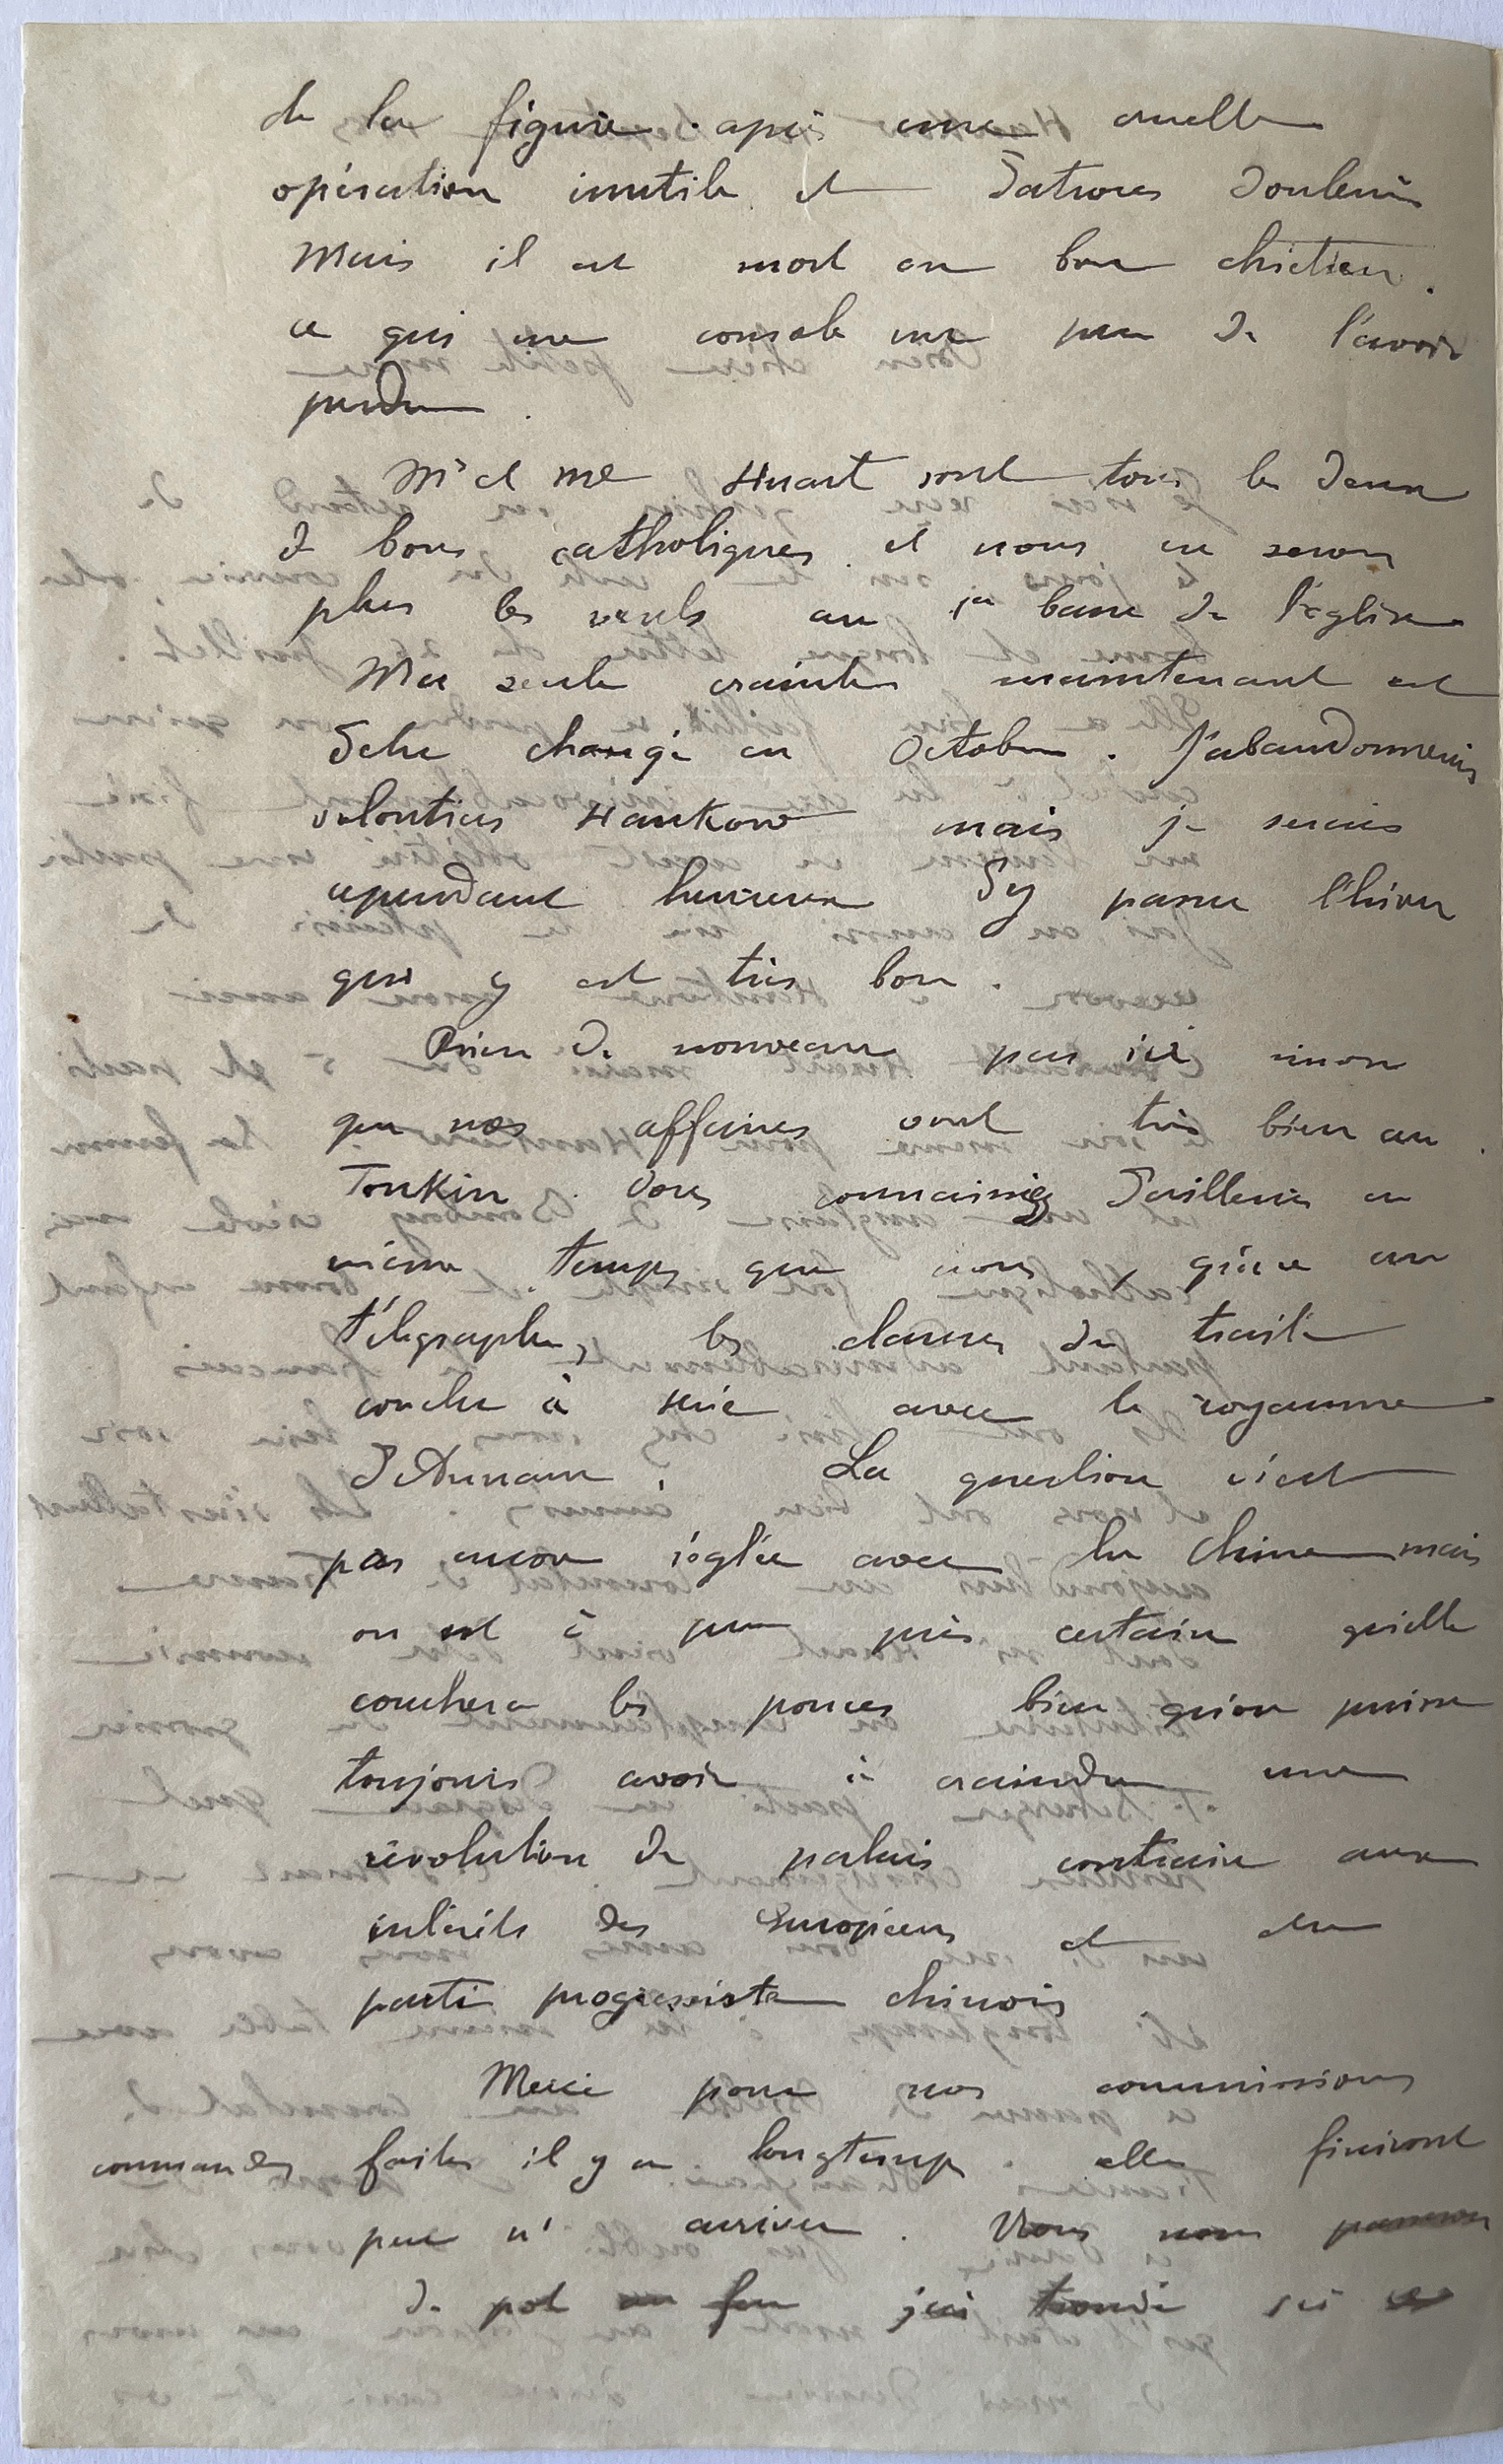 de la figure. après une cruelle
opération inutile et d'atroces douleurs
Mais il est mort en bon chrétien.
ce qui me console un peu de l'avoir
perdu.
Mr et Me Huart sont tous les deux
de bons catholiques et nous ne serons
plus les seuls au 1er banc de l'église
Ma seule crainte maintenant est
d'être changé en Octobre. J'abandonnerais
volontiers Hankow mais je serais
cependant heureux d'y passer l'hiver
qui y est très bon.
Rien de nouveau par ici sinon
que nos affaires vont très bien au
Tonkin. Vous connaissez d'ailleurs en
même temps que nous, grâce au
télégraphe, les clauses du traité
conclu à Hué avec le royaume
d'Annam. La question n'est
pas encore réglée avec la Chine mais
on est à peu près certain qu'elle
couchera les pouces bien qu'on puisse
toujours avoir à craindre une
révolution de palais contraire aux
intérêts des Européens et du
parti progressiste chinois
Merci pour nos commissions
commandes faites il y a longtemps. elles finiront
par n' arriver. Vous nous
de pot au feu j'ai trouvé ici